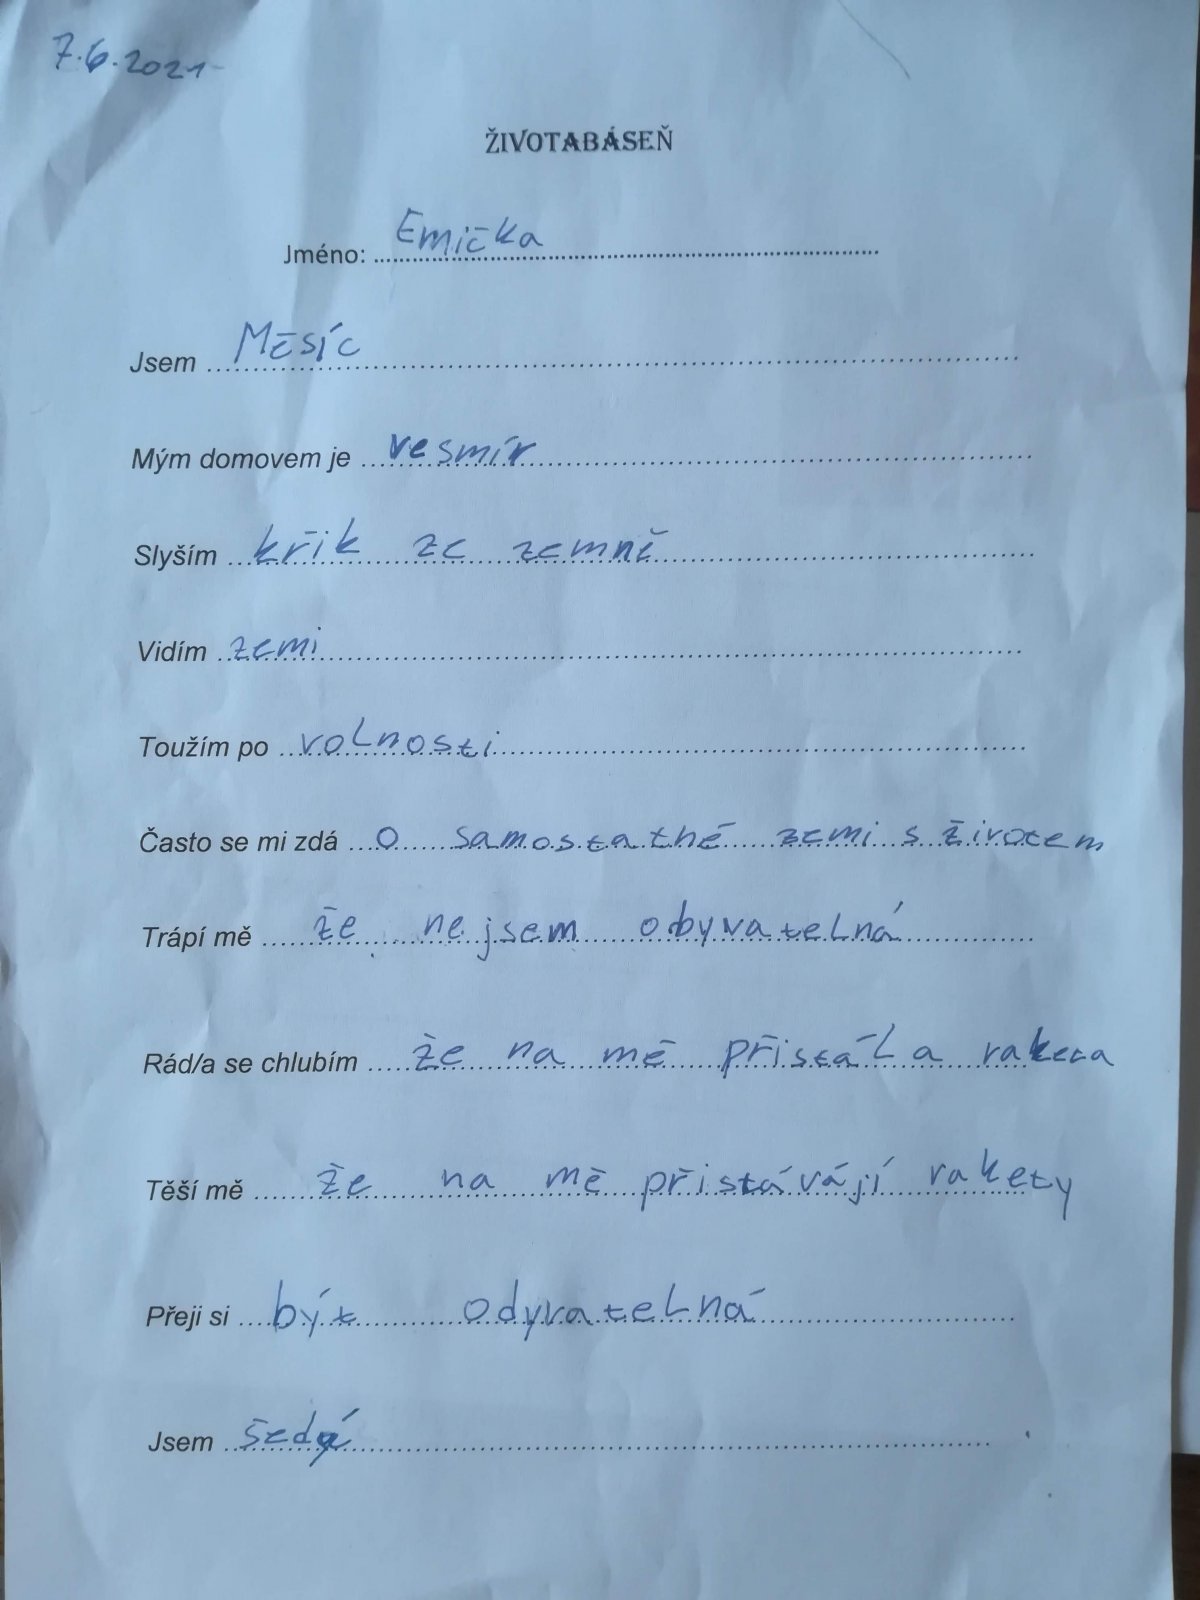 7.6.2021
ŽIVOTABÁSEŇ
Jméno: Emička
Jsem Měsíc
Mým domovem je vesmír
Slyším křik ze zemně
Vidím zemi
Toužím po volnosti
Často se mi zdá o samostatné zemi s životem
Trápí mě že nejsem obyvatelná
Rád/a se chlubím že na mě přistála raketa
Těší mě že na mě přistávájí rakety
Přeji si být odyvatelná
Jsem šedá